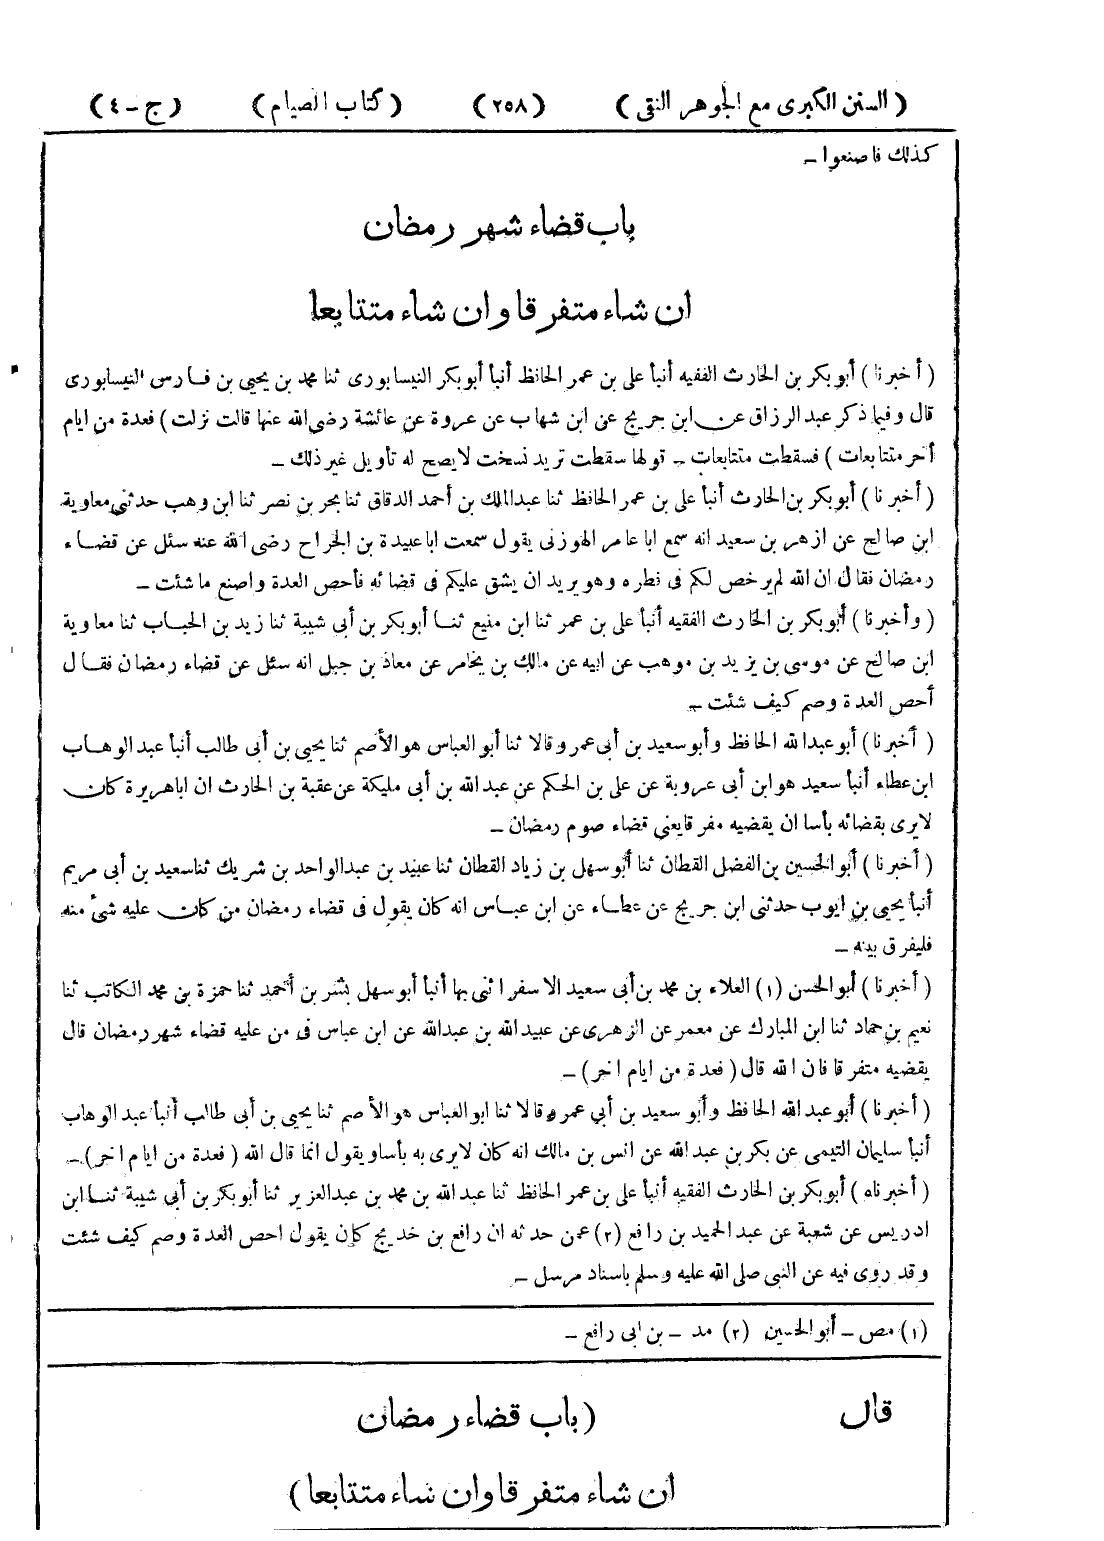 ( السنن الكبرى مع الجوهر النقى ) (٢٥٨) (كتاب الصيام) (ج - ٤)
كذلك فاصنعوا -
باب قضاء شهر رمضان
ان شاء متفرقا وان شاء متتابعا
( أخبرنا ) أبوبكر بن الحارث الفقيه أنبأ على بن عمر الحافظ أنبأ أبوبكر النيسابورى ثنا محمد بن يحيى بن فارس النيسابورى
قال وفيما ذكر عبد الرزاق عن ابن جريج عن ابن شهاب عن عروة عن عائشة رضى الله عنها قالت نزلت ) فعدة من ايام
أخر متتابعات ) فسقطت متتابعات - قولها سقطت تريد نسخت لا يصح له تأويل غير ذلك -
( أخبرنا ) أبوبكر بن الحارث أنبأ على بن عمر الحافظ ثنا عبدالملك بن أحمد الدقاق ثنا بحر بن نصر ثنا ابن وهب حدثنى معاوية
ابن صالح عن ازهر بن سعيد انه سمع ابا عامر الهوزنى يقول سمعت ابا عبيدة بن الجراح رضى الله عنه سئل عن قضاء
رمضان فقال ان الله لم يرخص لكم فى فطره وهو يريد ان يشق عليكم فى قضائه فأحص العدة واصنع ما شئت -
( وأخبرنا ) أبوبكر بن الحارث الفقيه أنبأ على بن عمر ثنا ابن منيع ثنا أبوبكر بن أبى شيبة ثنا زيد بن الحباب ثنا معاوية
ابن صالح عن موسى بن يزيد بن موهب عن ابيه عن مالك بن يخامر عن معاذ بن جبل انه سئل عن قضاء رمضان فقال
أحص العدة وصم كيف شئت -
( أخبرنا ) أبو عبدالله الحافظ وأبو سعيد بن أبى عمرو قالا ثنا أبو العباس هو الأصم ثنا يحيى بن أبى طالب أنبأ عبد الوهاب
ابن عطاء أنبأ سعيد هو ابن أبى عروبة عن على بن الحكم عن عبد الله بن أبى مليكة عن عقبة بن الحارث ان اباهريرة كان
لايرى بقضائه بأسا ان يقضيه مفرقا يعنى قضاء صوم رمضان -
( أخبرنا ) أبو الحسين بن الفضل القطان ثنا أبو سهل بن زياد القطان ثنا عبيد بن عبدالواحد بن شريك ثنا سعيد بن أبى مريم
أنبأ يحيى بن ايوب حدثنى ابن جريج عن عطاء عن ابن عباس انه كان يقول فى قضاء رمضان من كان عليه شئ منه
فليفرق بينه -
( أخبرنا ) أبو الحسن (١) العلاء بن محمد بن أبى سعيد الاسفرائنى بها أنبأ أبو سهل بشر بن أحمد ثنا حمزة بن محمد الكاتب ثنا
نعيم بن حماد ثنا ابن المبارك عن معمر عن الزهرى عن عبيد الله بن عبدالله عن ابن عباس فى من عليه قضاء شهر رمضان قال
يقضيه متفرقا فان الله قال ( فعدة من ايام اخر ) -
( أخبرنا ) أبو عبد الله الحافظ وأبو سعيد بن أبي عمرو قالا ثنا ابو العباس هو الأصم ثنا يحيى بن أبى طالب أنبأ عبد الوهاب
أنبأ سليمان التيمى عن بكر بن عبد الله عن انس بن مالك انه كان لايرى به بأسا ويقول انما قال الله ( فعدة من ايام اخر ) -
( أخبرناه ) أبوبكر بن الحارث الفقيه أنبأ على بن عمر الحافظ ثنا عبد الله بن محمد بن عبدالعزيز ثنا أبوبكر بن أبى شيبة ثنا ابن
ادريس عن شعبة عن عبد الحميد بن رافع (٢) عمن حدثه ان رافع بن خديج كان يقول احص العدة وصم كيف شئت
وقد روى فيه عن النبى صلى الله عليه وسلم باسناد مرسل -
(١) مص - أبو الحسين (٢) مد - بن ابى رافع -
قال (باب قضاء رمضان
ان شاء متفرقا وان شاء متتابعا)